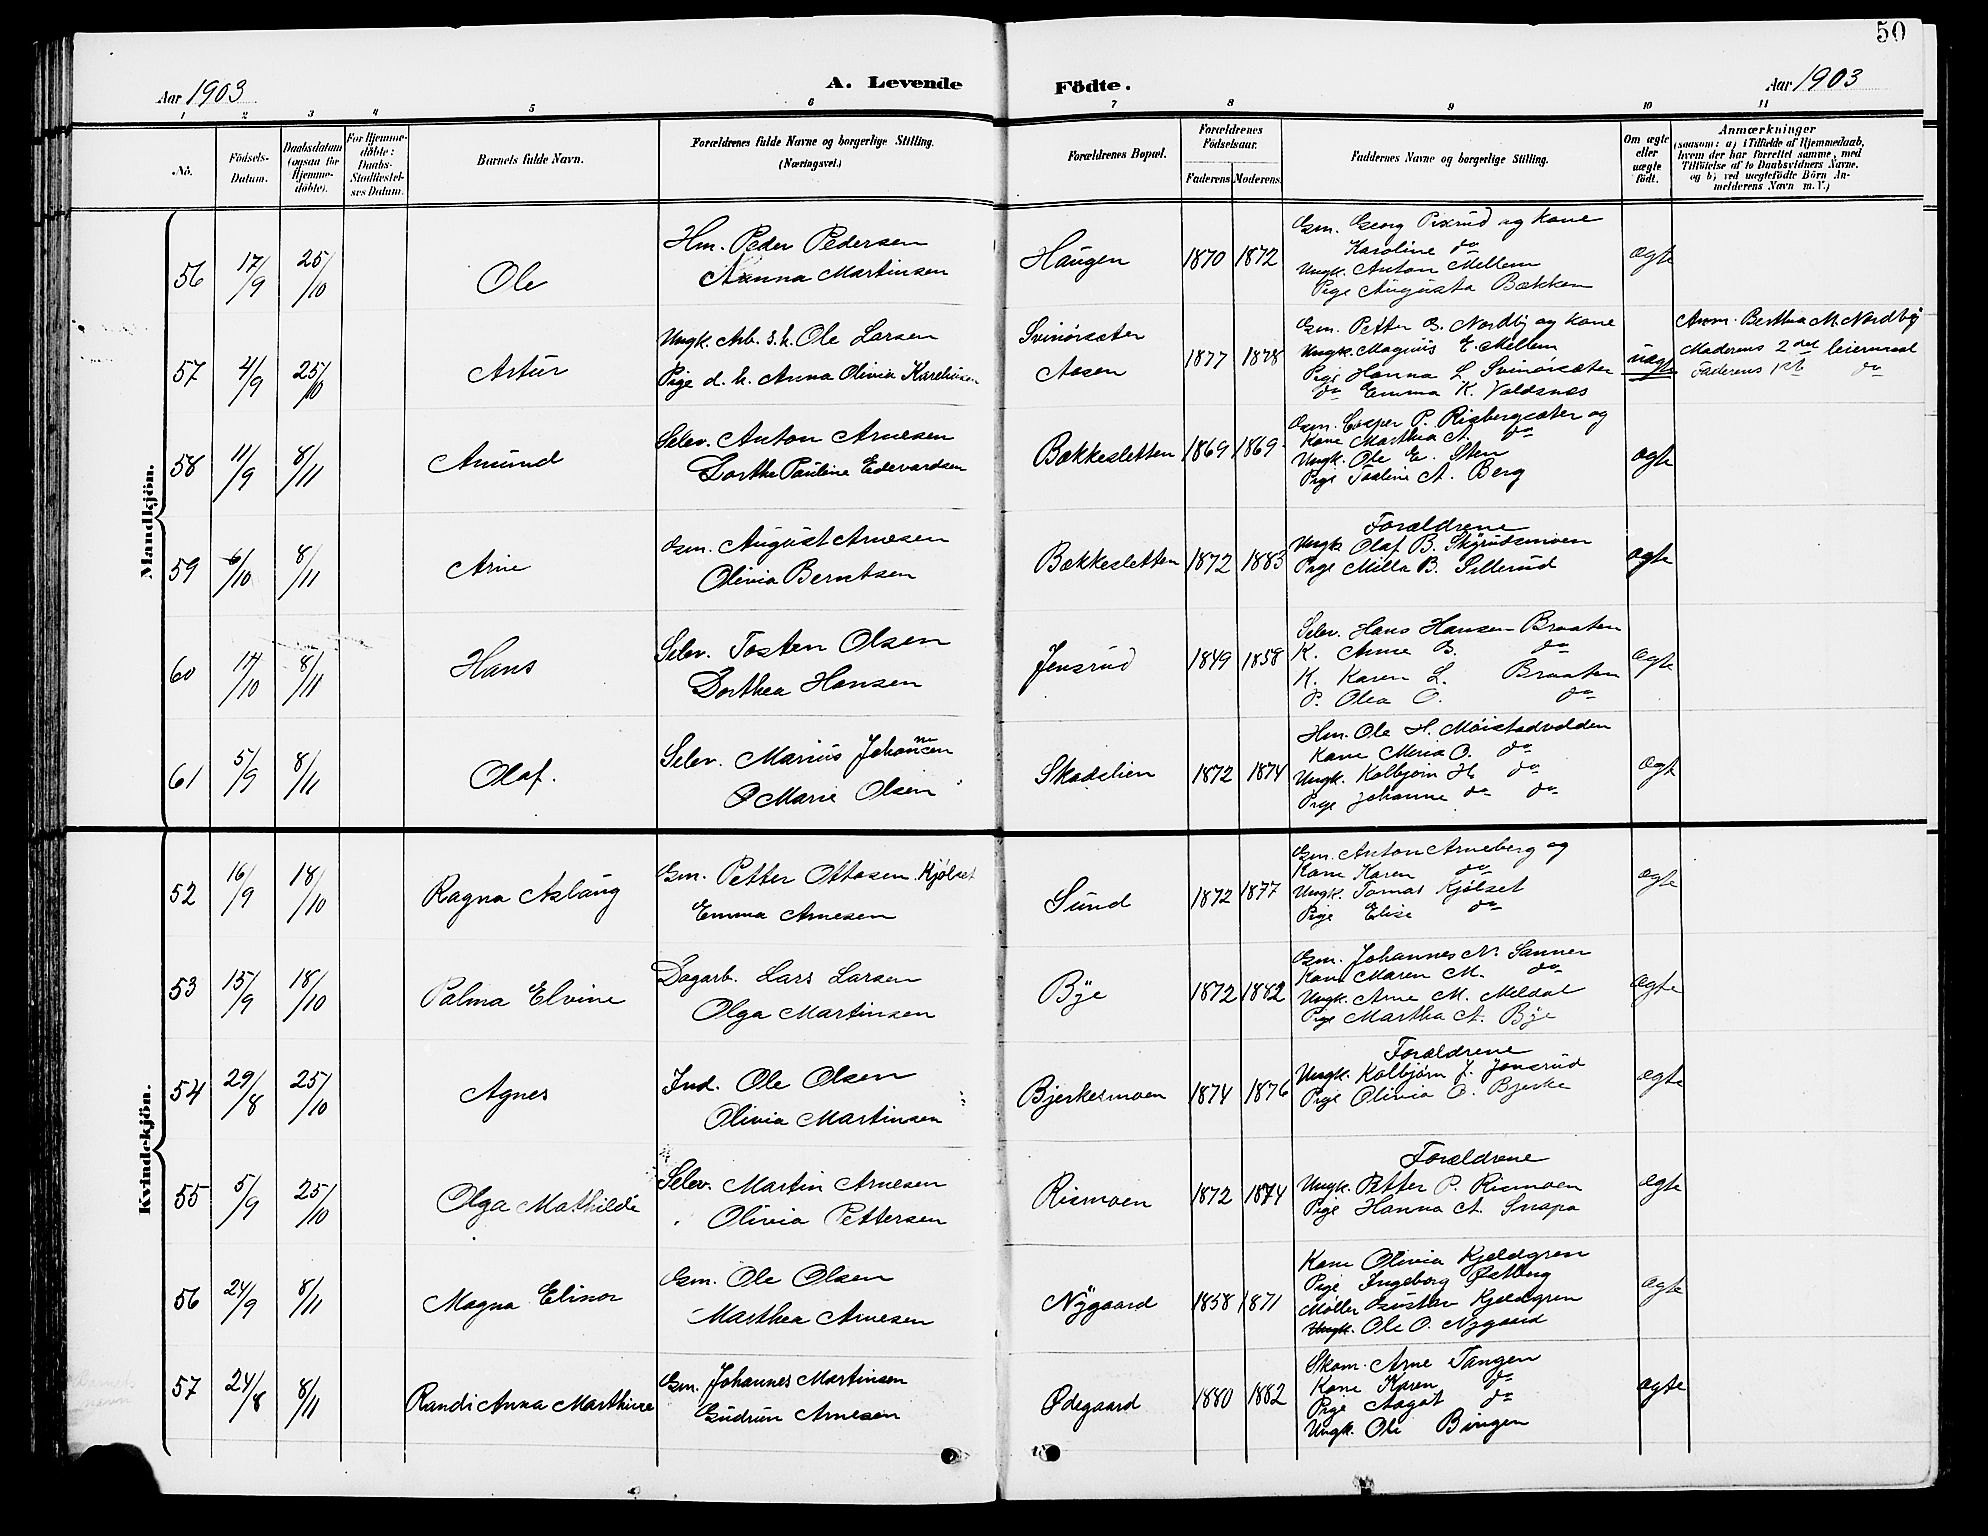 50
Aar 1903
A. Levende Födte.
Aar 1903
1 2 3 4 5 6 7 8 9 10 11
No.
Födsels-Datum.
Daabsdatum (ogsaa for Hjemme-döbte).
For Hjemme-döbte: Daabs-Stadfæstel-ses Datum.
Barnets fulde Navn.
Forældrenes fulde Navne og borgerlige Stilling.
(Næringsvei.)
Forældrenes Bopæl.
Forældrenes Födselsaar.
Faderens Moderens
Faddernes Navne og borgerlige Stilling.
Om ægte eller uægte födt.
Anmærkninger
(saasom: a) i Tilfælde af Hjemmedaab,
hvem der har forrettet samme, med
Tilföielse af to Daabsvidners Navne,
og b) ved uægtefödte Börn An-
melderens Navn m. V.)
Mandkjön.
56 17/9 25/10 Ole
Hm. Peder Pedersen
Anna Martinsen
Haugen 1870 1872
Gm. Georg Pixrud og Kone
Karoline do
Ungk. Anton Mellem
Pige Augusta Bækken
ægte
57 4/9 25/10 Artur
Ungk. Arb. s.k. Ole Larsen
Pige d. k. Anna Olivia Karelius­en
Svinörsæter
Aasen
1877 1878
Gm. Petter B. Nordby og Kone
Ungk. Magnus E. Mellem
Pige Hanna L. Svinörsæter
do Emma K. Voldsnes
uægte
Anm. Berthea M. Nordby
Moderens 2det leiermaal
Faderens 1ste do
58 11/9 8/11 Amund
Selv. Anton Arnesen
Dorthe Pauline Edevardsen
Bækkesletten 1869 1869
Gm. Casper P. Risbergsæter og
Kone Marthia A. do
Ungk. Ole E. Sten
Pige A. Berg
ægte
59 6/10 8/11 Arne
Gm. August Arnesen
Olivia Berntsen
Bækkesletten 1872 1883
Forældrene
Ungk Olaf B. Skyrudsmoen
Pige Milla B. Sillerud
ægte
60 17/10 8/11 Hans
Selv. Tosten Olsen
Dorthea Hansen
Jensrud 1849 1858
Selv. Hans Hansen Braaten
K. Anne B. do
K. Karen L. Braaten
P. Olea O. do
ægte
61 5/9 8/11 Olaf.
Selv. Marius Johannesen
O Marie Olsen
Skadslien 1872 1874
Hm. Ole H. Möistadvolden
Kone Maria O. do
Ungk. Kolbjörn H. do
Pige Johanne do do
ægt
Kvindekjön.
52 16/9 18/10 Ragna Aslaug
Gm. Petter Ottosen Kjölset
Emma Arnesen
Sund 1872 1877
Gm. Anton Arneberg og
Kone Karen do
Ungk. Tomas Kjölset
Pige Elise do
ægte
53 15/9 18/10 Palma Elvine
Dagarb. Lars Larsen
Olga Martinsen
Bye 1872 1882
Gm. Johannes N. Sanner
Kone Maren M. do
Ungk. Arne M. Meldal
Pige Martha A. Bye
ægte
54 29/8 25/10 Agnes
Ind. Ole Olsen
Olivia Martinsen
Bjerkesmoen 1874 1876
Forældrene
Ungk. Kolbjörn J. Jonsrud
Pige Olivia O. Bjerke
ægte
55 5/9 25/10 Olga Mathilde
Selv. Martin Arnesen
Olivia Pettersen
Rismoen 1872 1874
Forældrene
Ungk. Petter P. Rismoen
Pige Hanna A. Snapa
ægte
56 24/9 8/11 Magna Elinor
Gm. Ole Olsen
Marthea Arnesen
Nygaard 1858 1871
Kone Olivia Kjeldgren
Pige Ingeborg Østberg
Møller Gustav Kjeldgren
Ungk. Ole O. Nygaard
ægte
57 24/8 8/11 Randi Anna Marthine
Gm. Johannes Martinsen
Gudrun Arnesen
Ødegaard 1880 1882
Skom. Arne Tangen
Kone Karen do
Pige Aagot do
Ungk. Ole Bingen
ægte